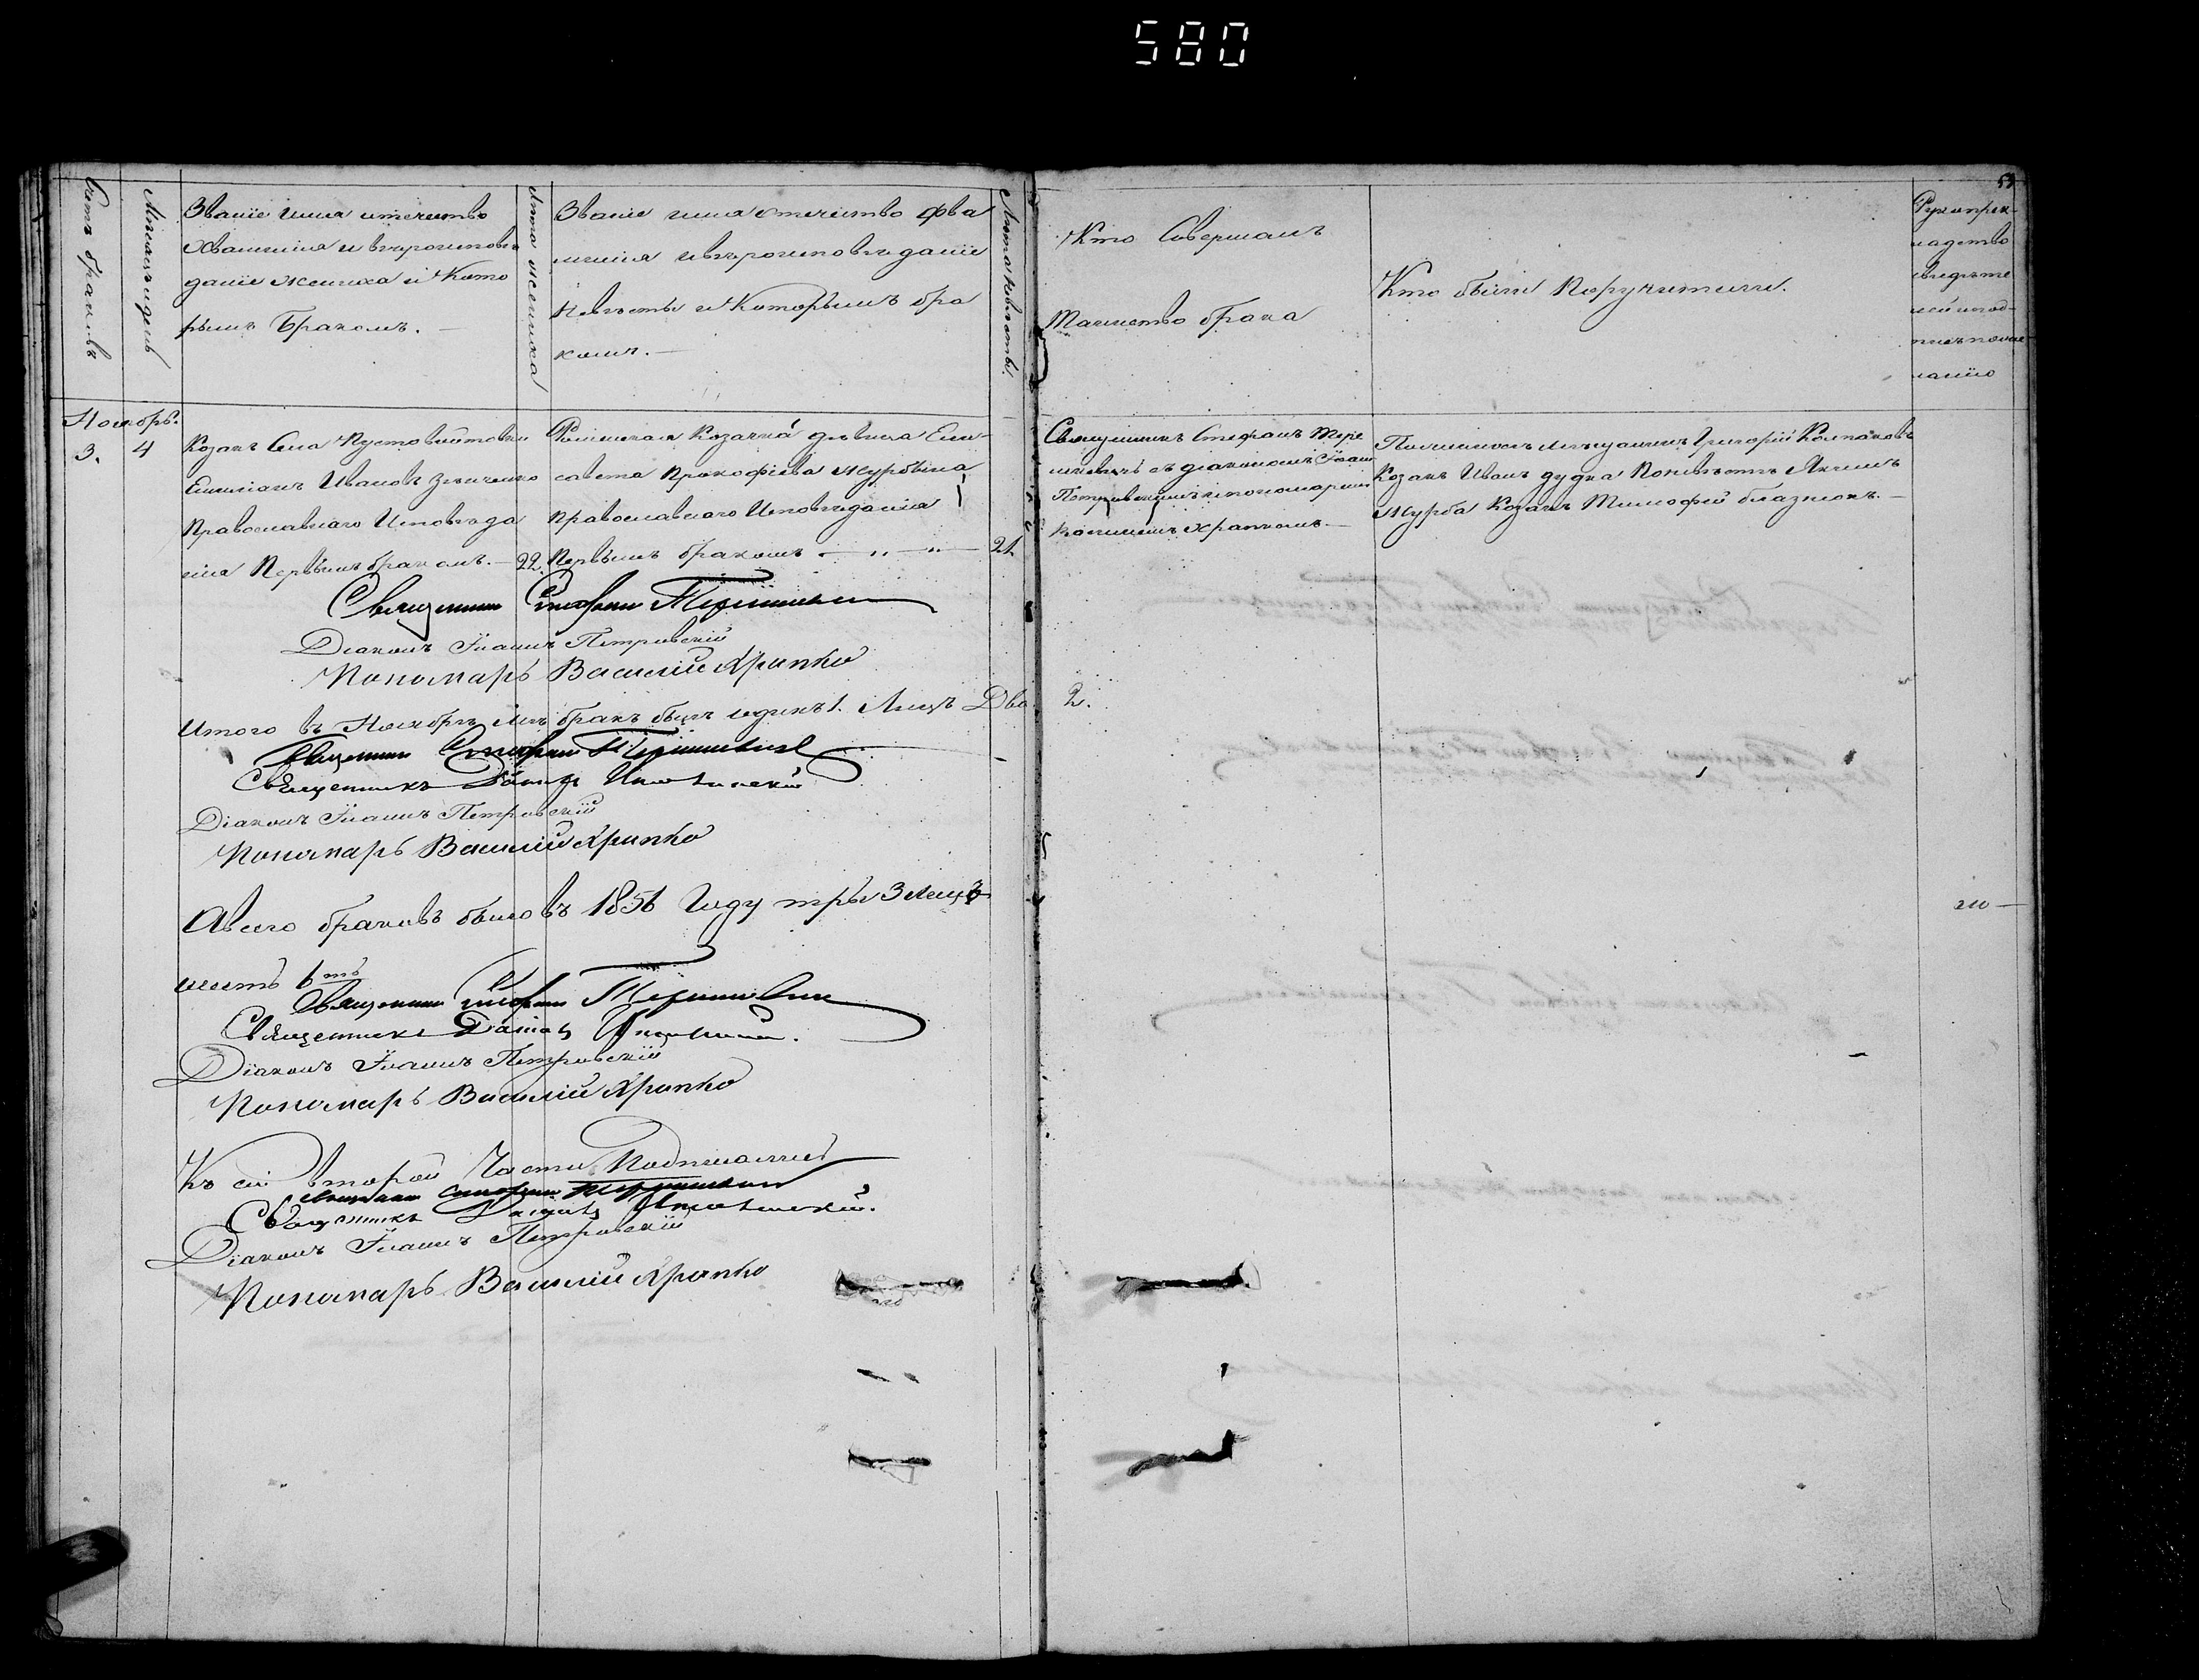 580
53
Счетъ браковъ
Мѣсяцъ и день
Званіе имя отечество
Фвамилія и вѣроисповѣ
даніе жениха и Кото
рымъ Бракомъ. —
Лѣта жениха
Званіе имя отечество фва
милія и вѣроисповѣданіе
Невѣсты и Которымъ бра
комъ. —
Лѣта невѣсты.
Кто Совершалъ
Таинство брака
Кто были Поручители.
Ноябрь.
3. 4
Козакъ Села Пустовойтовки
Емиліанъ Ивановъ
Православнаго Исповѣда
нія Первымъ бракомъ. — 22.
Роменская Козачка дѣвица Ели-
савета Прокофіева Мурбына
Православнаго Исповѣданія
Первымъ бракомъ — „ — „ — 21
Священникъ Стефанъ Тере
шкевичь съ діакономъ Іоан
Петровскимъ и пономаремъ
Храпкомъ. —
мѣщанинъ Григорій Колпаковъ
Козакъ Иванъ дудка По невѣстѣ Якимъ
Мурба Козакъ Тимофей близнюкъ. —
Священникъ Стефанъ Терешкевичь
Діаконъ Іоаннъ Петровскій
Пономарь Василій Храпко
Итого въ Ноябрѣ м-цѣ бракъ былъ одинъ 1. Лицъ Два 2.
Священникъ Стефанъ Терешкевичь
Священникъ
Діаконъ Іоаннъ Петровскій
Пономарь Василій Храпко
А всего браковъ было въ 1856 Году три 3 Лицъ
шесть 6ть
Священникъ Стефанъ Терешкевичь
Священникъ
Діаконъ Іоаннъ Петровскій
Пономарь Василій Храпко
Къ сей второй Части Подписались
Священникъ Стефанъ Терешкевичь
Священникъ
Діаконъ Іоаннъ Петровскій
Пономарь Василій Храпко